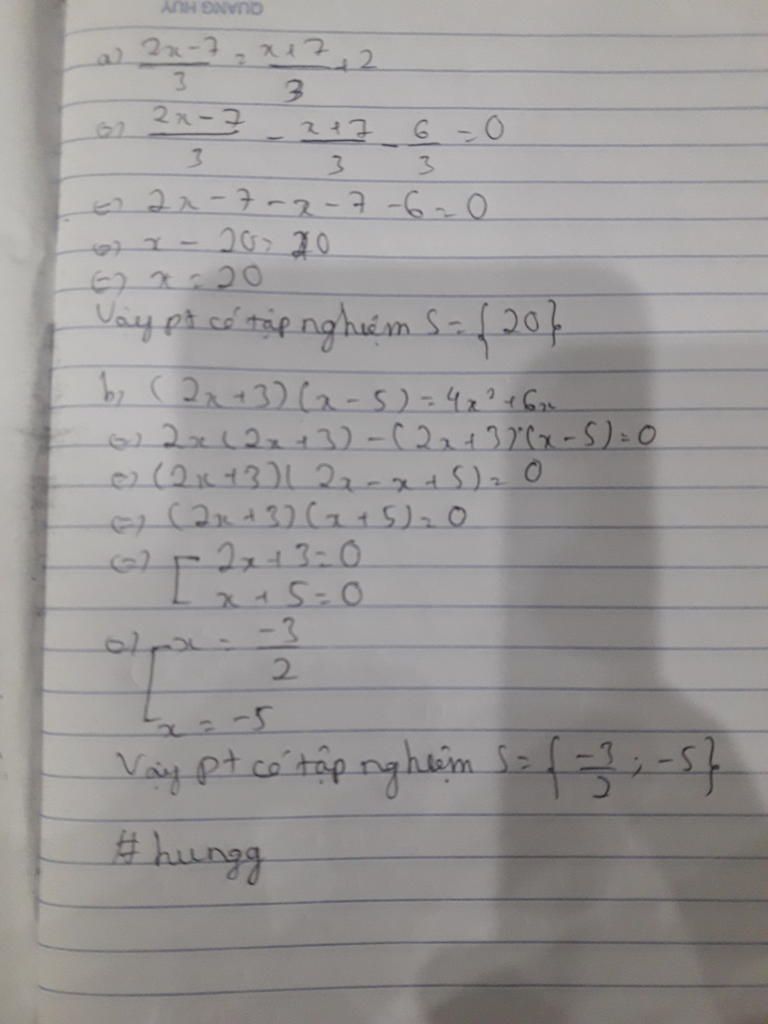 QUANG HUY
a) \frac{2x-7}{3} = \frac{x+7}{3} + 2
<=> \frac{2x-7}{3} - \frac{x+7}{3} - \frac{6}{3} = 0
<=> 2x - 7 - x - 7 - 6 = 0
<=> x - 20 = 0
<=> x = 20
Vậy pt có tập nghiệm S = {20}
b, (2x+3)(x-5) = 4x² + 6x
<=> 2x(2x+3) - (2x+3)(x-5) = 0
<=> (2x+3)(2x - x + 5) = 0
<=> (2x+3)(x+5) = 0
<=> [ 2x + 3 = 0
x + 5 = 0
<=> [ x = \frac{-3}{2}
x = -5
Vậy pt có tập nghiệm S = {\frac{-3}{2}; -5}
#hungg